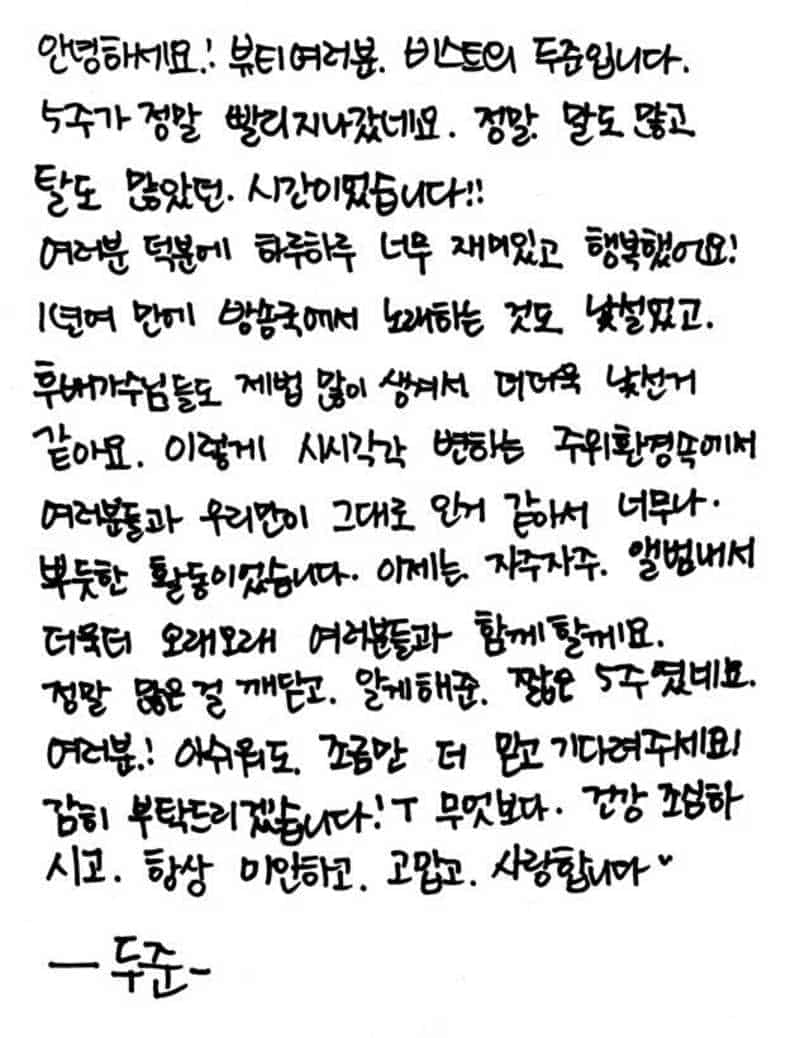 안녕하세요.! 뷰티여러분. 비스트의 두준입니다.
5주가 정말 빨리지나갔네요. 정말. 말도 많고
탈도 많았던. 시간이였습니다!!
여러분 덕분에 하루하루 너무 재미있고 행복했어요!
1년여 만에 방송국에서 노래하는 것도 낯설었고.
후배가수님들도 제법 많이 생겨서 더더욱 낯선거
같아요. 이렇게 시시각각 변하는 주위환경속에서
여러분들과 우리만이 그대로 인거 같아서 너무나.
뿌듯한 활동이었습니다. 이제는 자주자주. 앨범내서
더욱더 오래오래 여러분들과 함께할께요.
정말 많은걸 깨닫고. 알게해준. 짧은 5주였네요.
여러분.! 아쉬워도. 조금만 더 믿고 기다려주세요!
감히 부탁드리겠습니다!ㅜ 무엇보다. 건강 조심하
시고. 항상 미안하고. 고맙고. 사랑합니다♥
— 두준 –